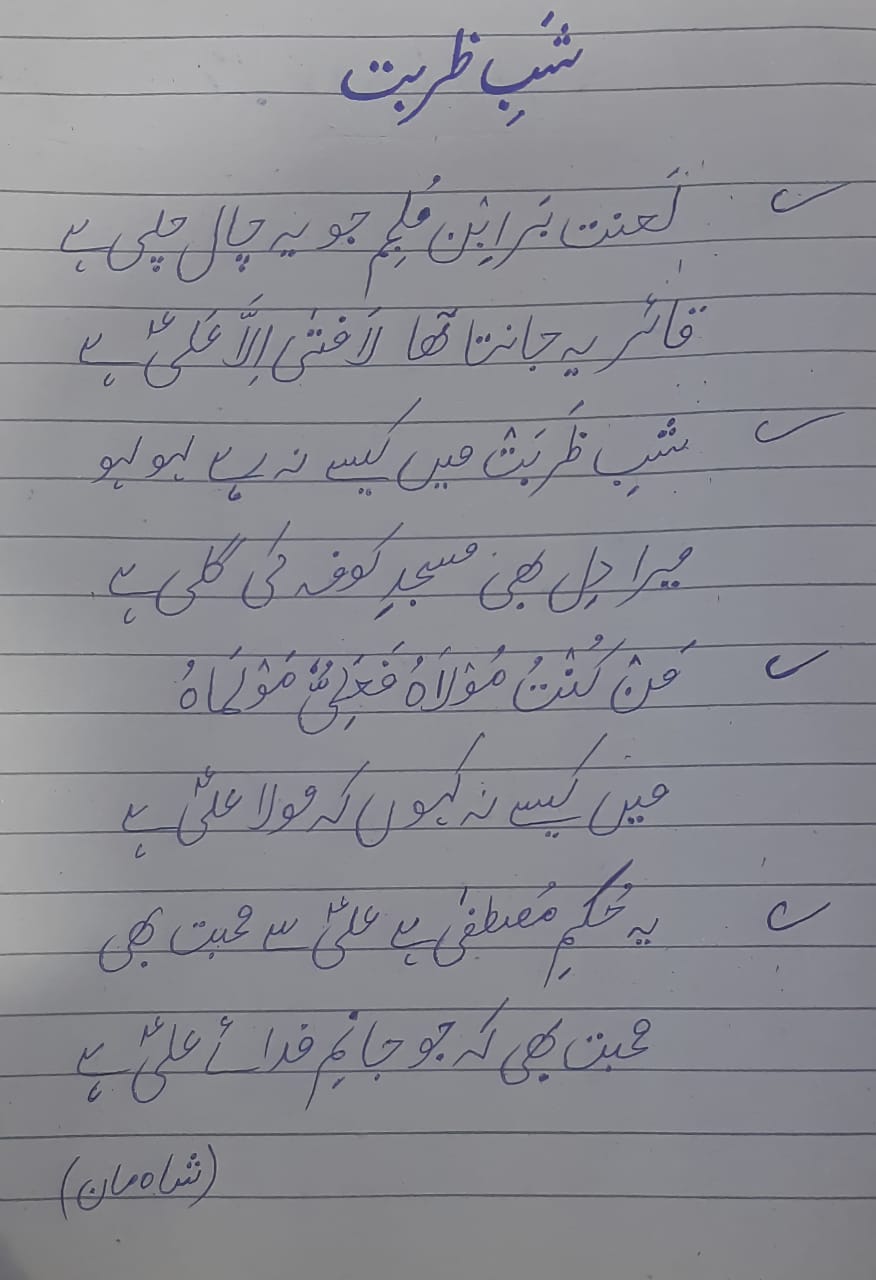 شَبِ ظربت
لَعنت بَر ابنِ مُلِجم جو یہ چال چلی ہے
قائر یہ جانتا تھا لَا فتیٰ اِلَّا عَلیؑ ہے
شبِ ظَربَت میں کیسے نہ رہے لہو لہو
میرا دِل بھی مسجدِ کوفہ کی گلی ہے
مَنْ كُنْتُ مُوْلَاهُ فَعَلِیٌّ مَوْلَاهُ
میں کیسے نہ کہوں کہ مولا علیؑ ہے
یہ حُکمِ مُصطفیٰ ہے علیؑ سے محبت بھی
محبت بھی کہ جو جانِم فدائے علیؑ ہے
(شاہ مان)